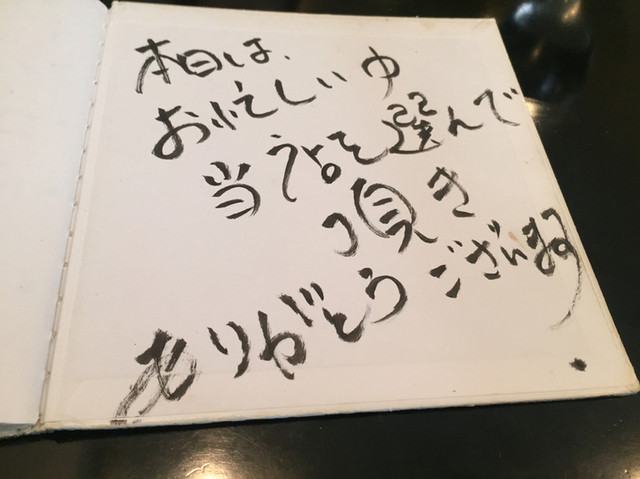 本日は、
お忙しい中
当店を選んで
頂き
ありがとうございます。